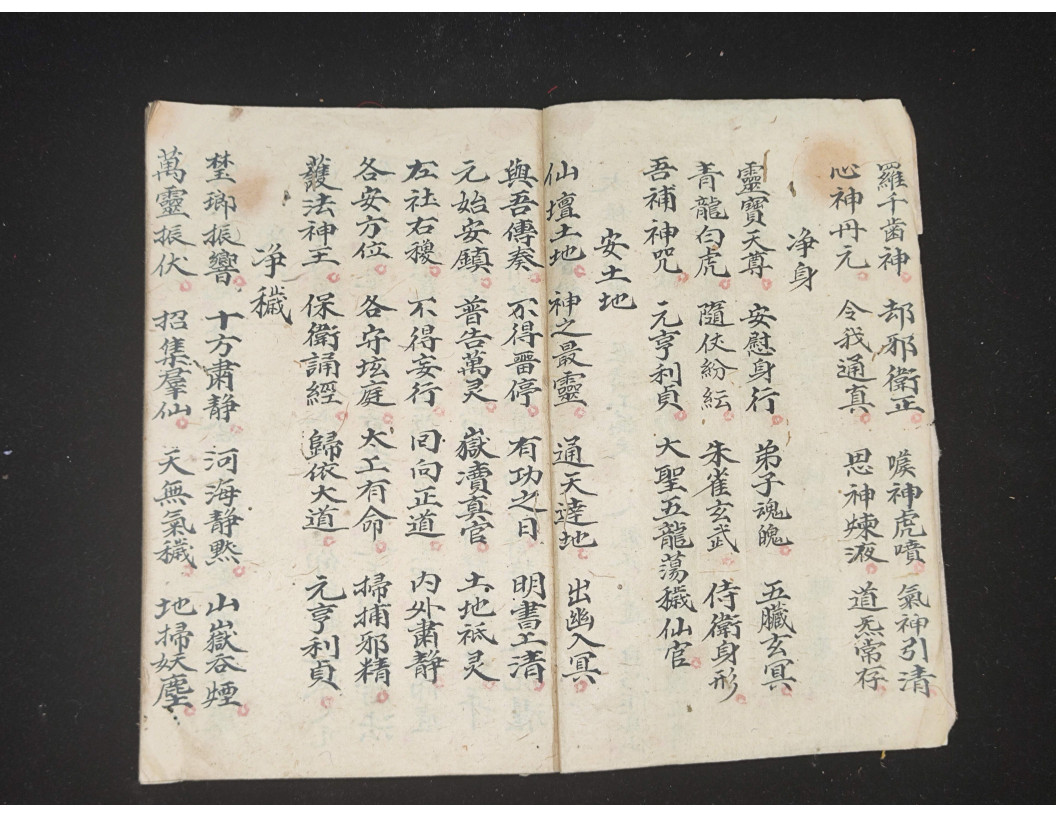 羅千齒神 却邪衛正 喉神虎噴 氣神引清
心神丹元 令我通真 思神煉液 道炁常存
净身
靈寶天尊 安慰身行 弟子魂魄 五臟玄冥
青龍白虎 隨伩紛紜 朱雀玄武 侍衛身形
吾補神咒 元亨利貞 大聖五龍蕩穢仙官
安土地
仙壇土地 神之最靈 通天達地 出幽入冥
與吾傳奏 不得畱停 有功之日 明書上清
元始安鎮 普告萬灵 嶽瀆真官 土地祇灵
左社右稷 不得妄行 囘向正道 內外肅静
各安方位 各守坛庭 太上有命 掃捕邪精
護法神王 保衛誦經 歸依大道 元亨利貞
净穢
琅振響 十方肅静 河海静黙 山嶽吞煙
萬靈振伏 招集羣仙 天無氣穢 地掃妖塵